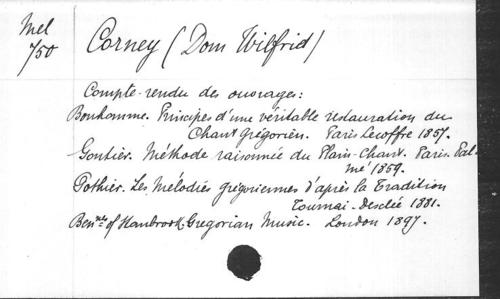 Mel
750
Corney (Dom Wilfrid)
Compte-rendu des ouvrages:
Bonhomme. Principes d'une véritable restauration du
Chant grégorien. Paris Lecoffre 1857.
Gontier. Méthode raisonnée du Plain-Chant. Paris. Pal-
mé 1859.
Pothier. Les Mélodies grégoriennes d'après la Tradition
Tournai. Desclée 1881.
Ben.nes of Stanbrook. Gregorian Music. London 1897.